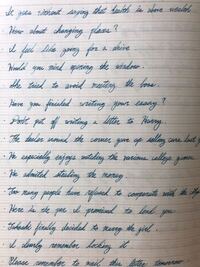 It goes without saying that health is above wealth.
How about changing planes?
I feel like going for a drive.
Would you mind opening the window.
She tried to avoid meeting the boss.
Have you finished writing your essay?
Don't put off writing a letter to Harry.
The dealer around the corner gave up selling cars last y
He especially enjoys watching the various college games
He admitted stealing the money.
Too many people have refused to cooperate with the
Here is the pen I promised to lend you
Takashi finally decided to marry the girl.
I clearly remember locking it
Please remember to mail this letter tomorrow